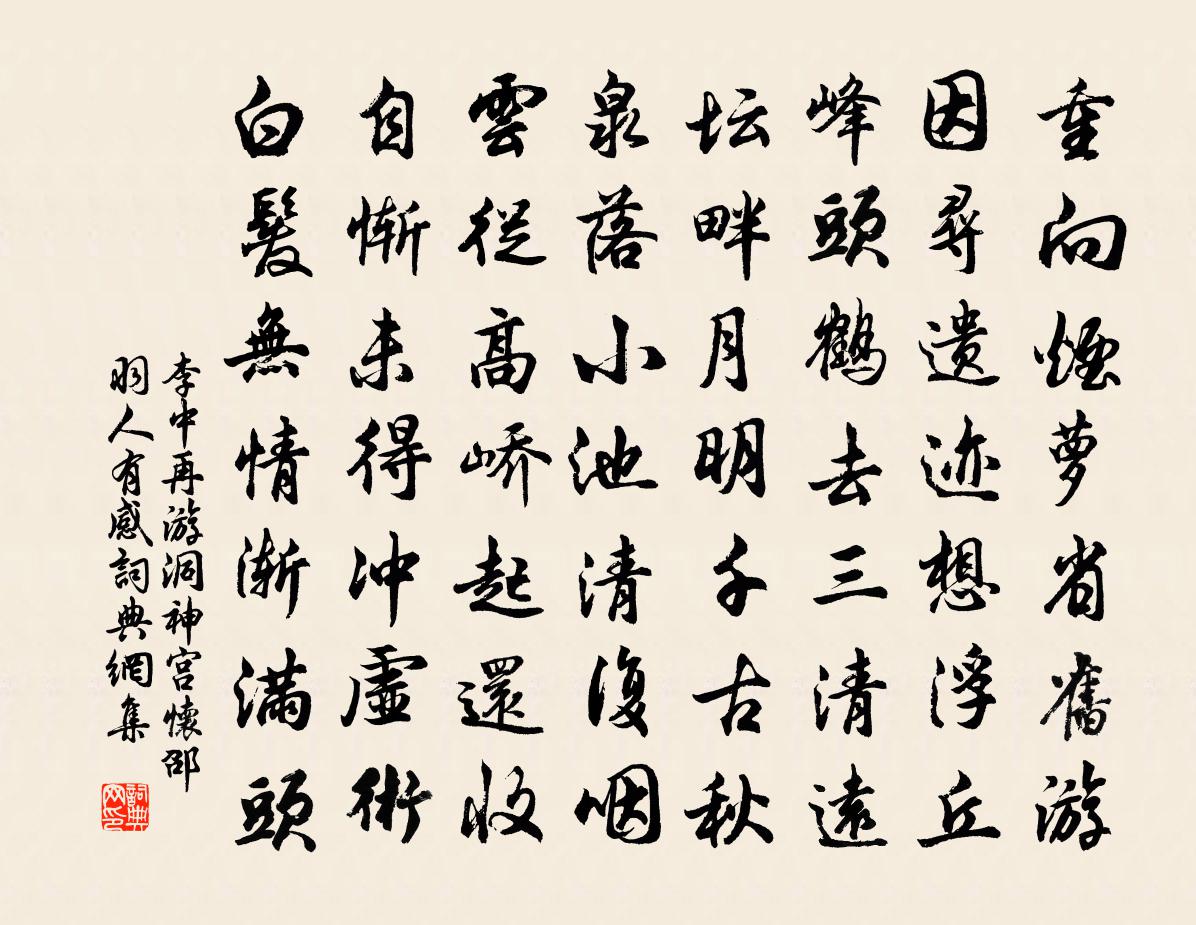 重向煙萝省舊游
因尋遗迹想浮丘
峰頭鶴去三清遠
坛畔月明千古秋
泉落小池清復咽
雲從高峤起還收
自惭未得冲虛術
白髮無情渐满頭
李中再游洞神宫懷邵
羽人有感詞典網集
詞典
网印